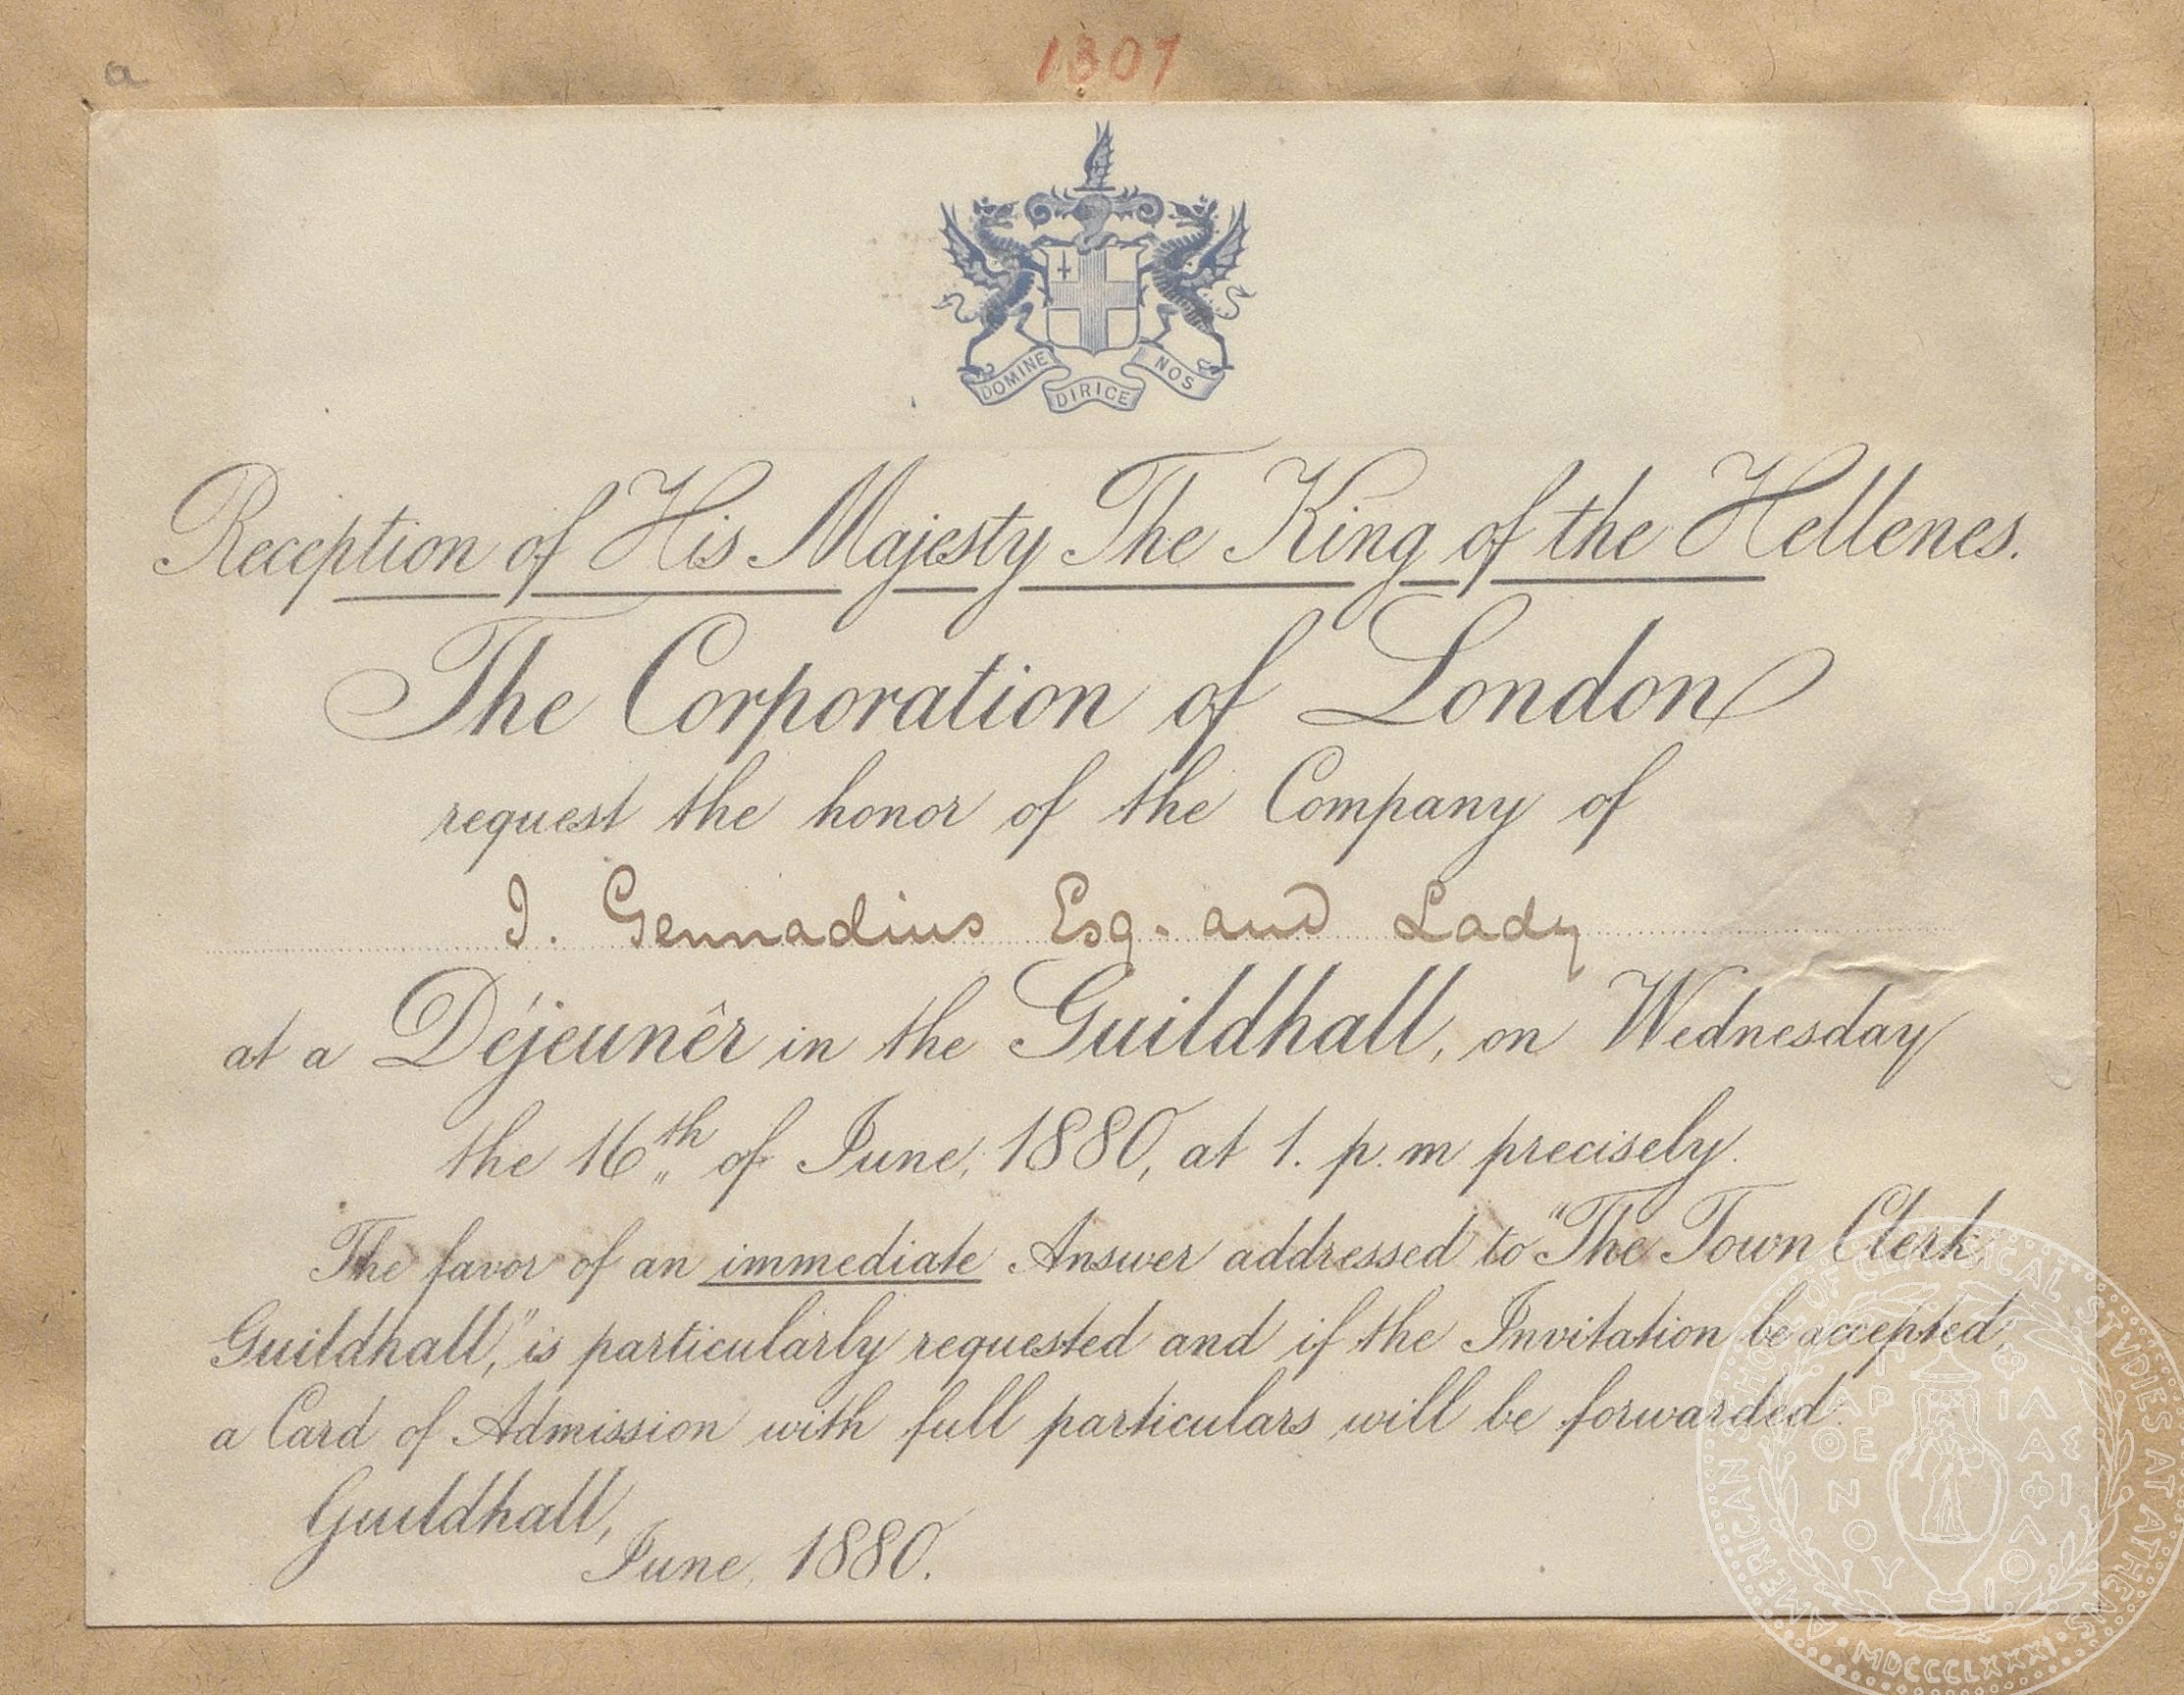 a
1307
DOMINE DIRICE NOS
Reception of His Majesty The King of the Hellenes.
The Corporation of London
request the honor of the Company of
J. Gennadius Esq. and Lady
at a Déjeunêr in the Guildhall, on Wednesday
the 16th of June, 1880, at 1. p.m precisely.
The favor of an immediate Answer addressed to "The Town Clerk,
Guildhall," is particularly requested and if the Invitation be accepted,
a Card of Admission with full particulars will be forwarded.
Guildhall,
June, 1880.
AMERICAN SCHOOL OF CLASSICAL STVDIES AT ATHENS
MDCCCLXXXI
ΠΑΡΘΕΝΟΥ ΦΙΛΑΣ ΦΙΛΟΙ